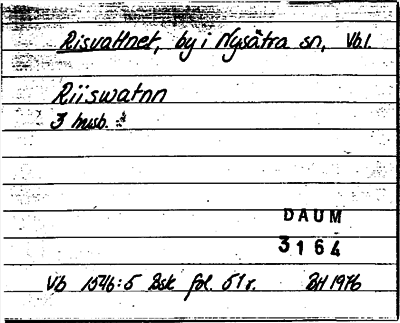 Risvattnet, by i Nysätra sn, Vb.
Riiswatnn
3 husb.
DAUM
3164
Vb 1546:5 Bsk fol. 51r. BH 1976